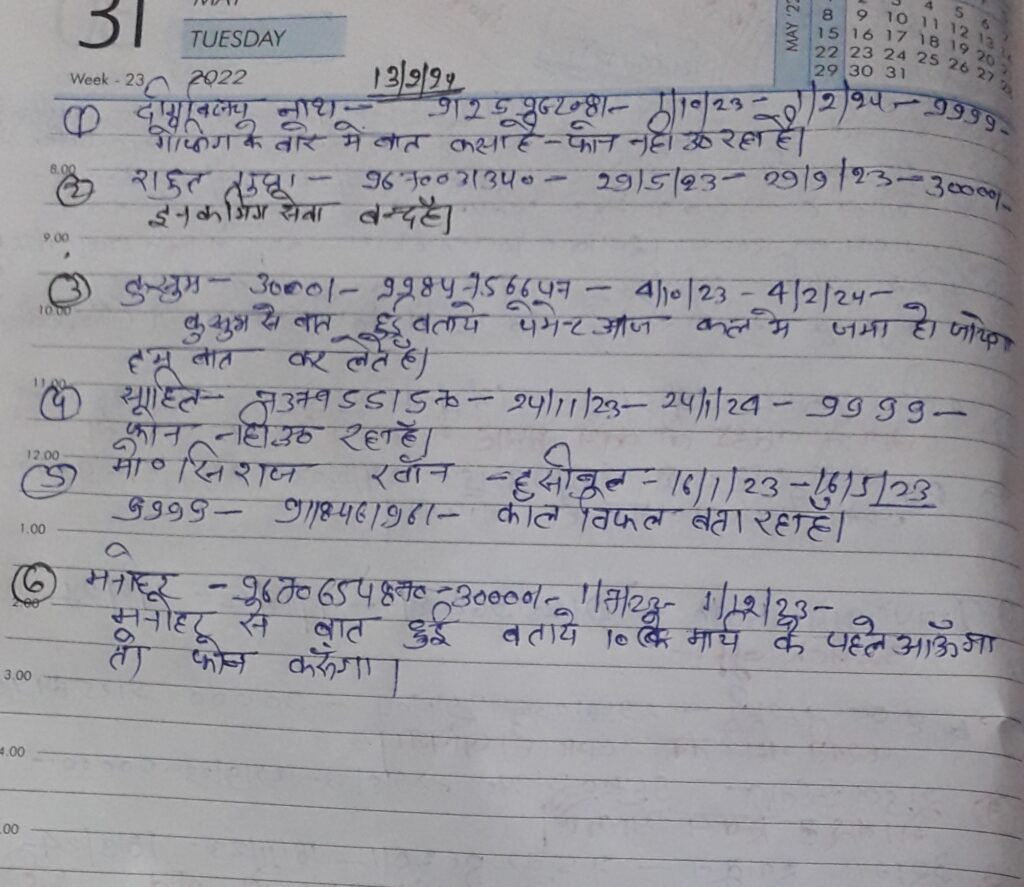 31 MAY
TUESDAY
Week - 23 2022 13/2/24
MAY '22
4 5 6
8 9 10 11 12 13
15 16 17 18 19 20
22 23 24 25 26 27
29 30 31
① नाथ - 1/10/23 - 1/2/24 - 9999-
के बारे में बात करना है - फोन नहीं उठ रहा है।
8.00
② - 9670031340 - 29/5/23 - 29/9/23 - 30000/-
इनकमिंग सेवा बन्द है।
9.00
③ कुसुम - 30000/- - 4/10/23 - 4/2/24 -
10.00
कुसुम से बात हुई बताये पेमेन्ट आज कल मे जमा हो जायेगा
हम बात कर लेते है।
11.00
④ - 24/11/23 - 24/1/24 - 9999 -
फोन नहीं उठ रहा है।
12.00
⑤ मो० सिराज खाँन - - 16/1/23 - 16/5/23
9999 - काल विफल बता रहा है।
1.00
⑥ मनोहर - - 30000/- 1/7/23 - 1/12/23 -
2.00
मनोहर से बात हुई बताये 10 के पहले आऊँगा
तो फोन करूँगा।
3.00
4.00
.00